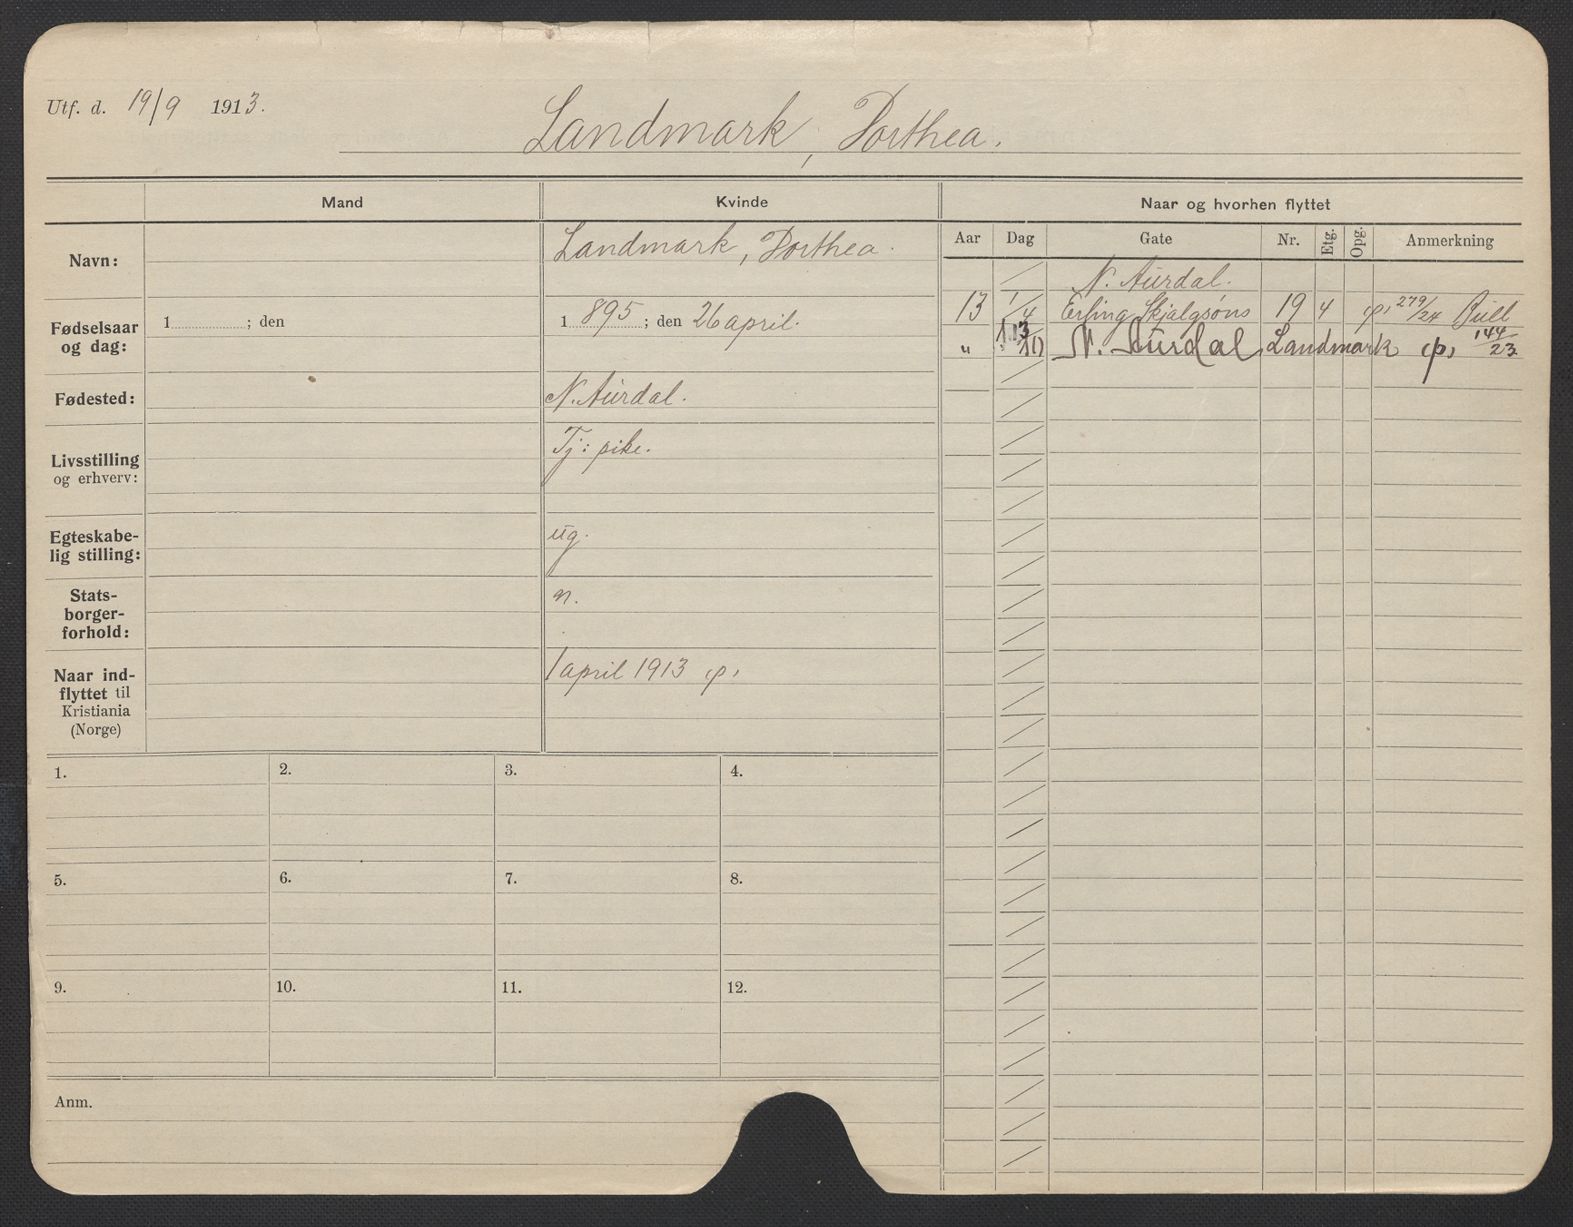 Utf. d. 19/9 1913.
Landmark, Dorthea.
Mand
Kvinde
Naar og hvorhen flyttet
Aar Dag Gate Nr. Etg. Opg. Anmerkning
Navn:
Landmark, Dorthea.
N. Aurdal.
13 1/4 Erling Skjalgsøns 19 4 p, 279/24 Bull
Fødselsaar
og dag:
1 ; den
1 895 ; den 26 april.
" 10 N. Aurdal, Landmark p, 144/23
Fødested:
N. Aurdal.
Livsstilling
og erhverv:
Tj: pike.
Egteskabe-
lig stilling:
ug.
Stats-
borger-
forhold:
n.
Naar ind-
flyttet til
Kristiania
(Norge)
1 april 1913 p,
1. 2. 3. 4.
5. 6. 7. 8.
9. 10. 11. 12.
Anm.